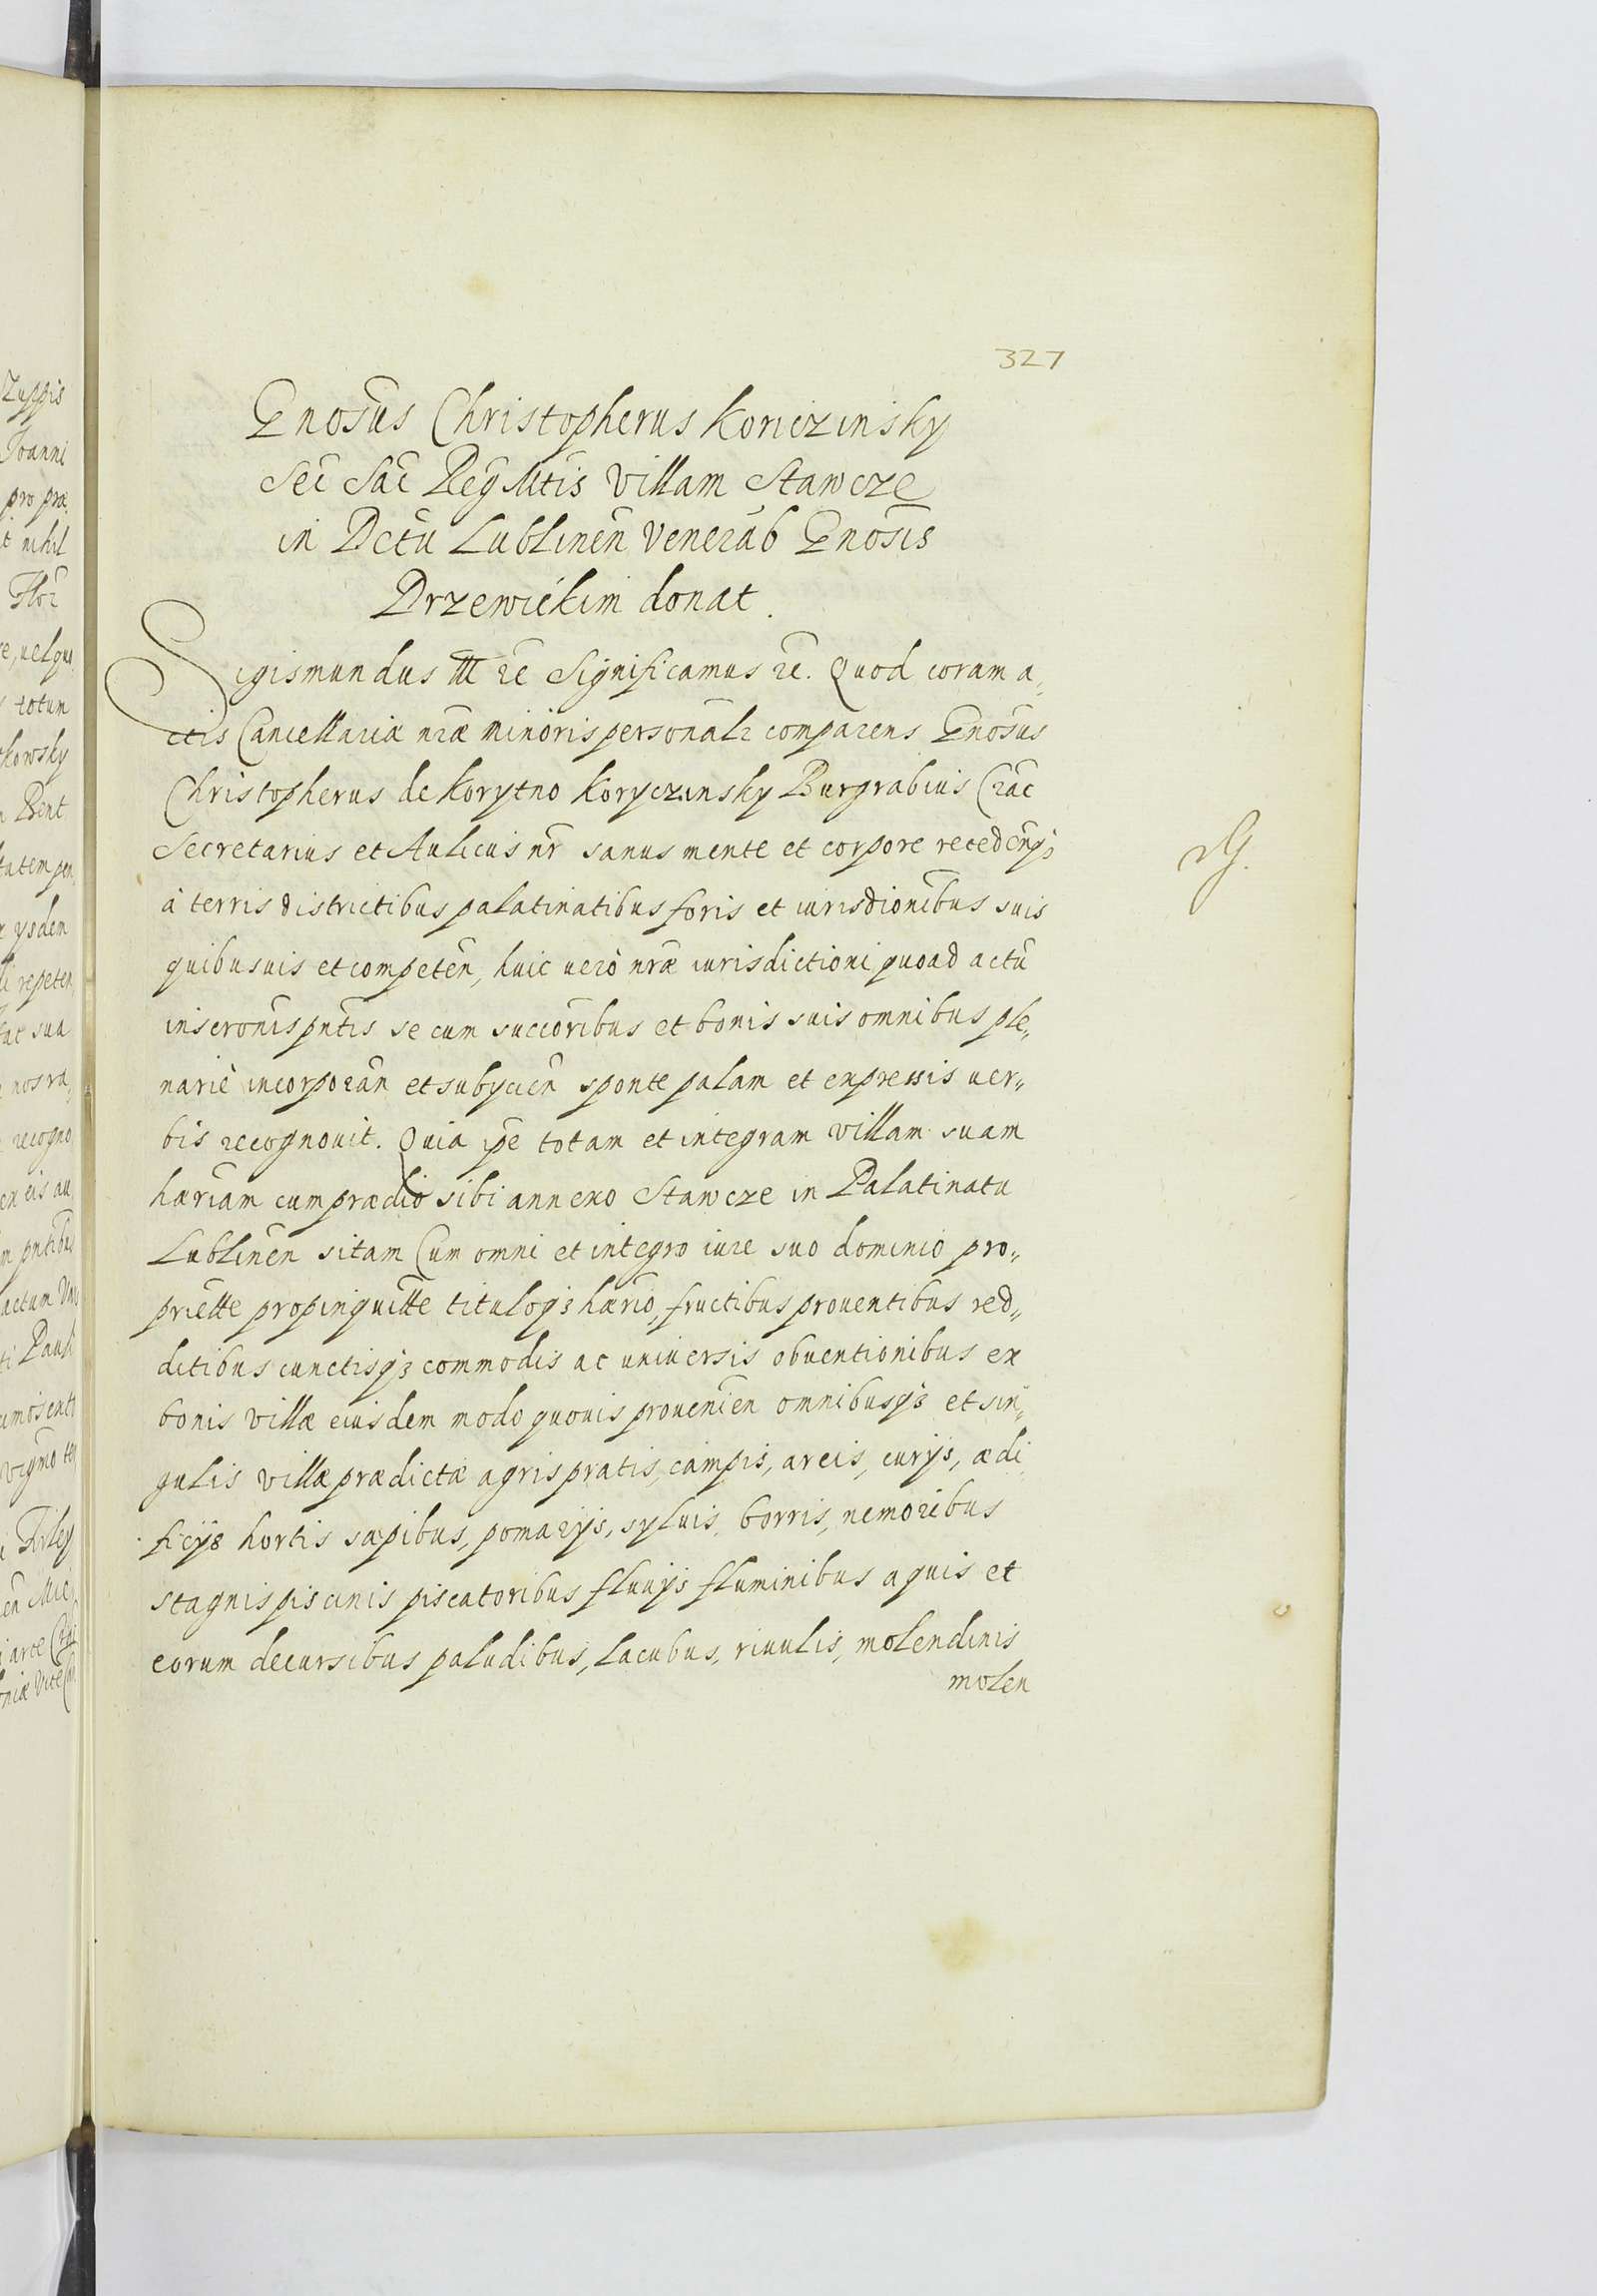 327
Gnosus Christopherus Koriczinsky
Sec Sac Reg Mtis Villam Stawcze
in Dctu Lublinen Venerab Gnosis
Drzewickim donat.
Sigismundus III etc Significamus etc. Quod coram a,
ctis Cancellariæ nræ minoris personalr comparens Gnosus
Christopherus de Korytno Koryczinsky Burgrabius Crac
Secretarius et Aulicus nr sanus mente et corpore recedenqȝ
à terris districtibus palatinatibus foris et iurisdionibus suis
quibusuis et competen, huic uerò nræ iurisdictioni quoad actu
inscronis pntis se cum succoribus et bonis suis omnibus ple,,
nariè incorporan et subycien sponte palam et expressis uer,,
bis recognouit. Quia ipe totam et integram villam suam
hæriam cum prædio sibi annexo Stawcze in Palatinatu
Lublinen sitam Cum omni et integro iure suo dominio pro,,
priette propinquitte tituloqȝ hærio, fructibus prouentibus red,,
ditibus cunctisqȝ commodis ac uniuersis obuentionibus ex
bonis villæ eiusdem modo quouis prouenien omnibusqȝ et sin,,
gulis villæ prædictæ agris pratis, campis, areis, curijs, ædi
ficijs hortis sæpibus, pomarijs, syluis, borris, nemoribus
stagnis piscinis piscatoribus fluuijs fluminibus aquis et
eorum decursibus paludibus, lacubus, riuulis, molendinis
molen
Zuppis
Joanni
pro præ
t nihil
totum
kowsky
ysdem
repeten
nos ra
recogno
actum
Pauli
Firley